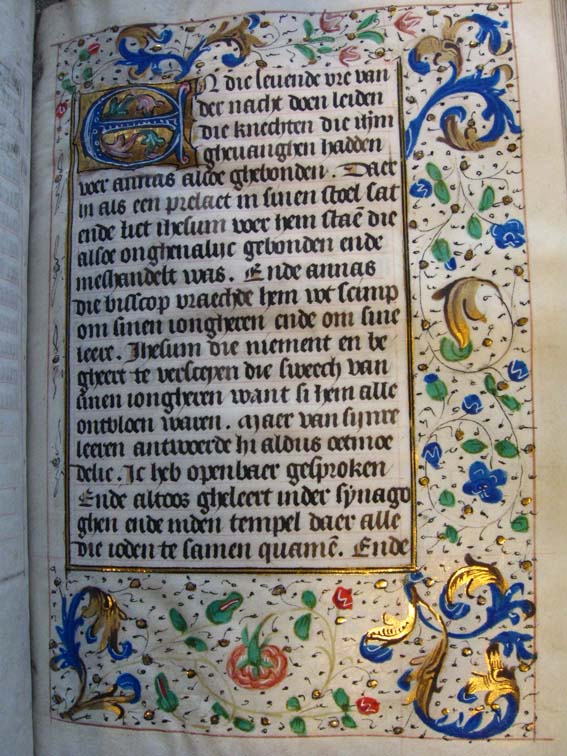 In die seuende vre van
der nacht doen leiden
die knechten die ihm
gheuanghen hadden
voer annas alsoe ghebonden. Daer
hi als een prelaet in sinen stoel sat
ende liet ihesum voer hem staē die
alsoe onghenalijc gebonden ende
meshandelt was. Ende annas
die bisscop vraechde hem wt scimp
om sinen iongheren ende om sine
leere. Ihesum die niement en be
gheert te verscepen die sweech van
sinen iongheren want si hem alle
ontvloen waren. Maer van sijnre
leeren antwoerde hi aldus oetmoe
delic. Ic heb openbaer gesproken
Ende altoos gheleert inder synago
ghen ende inden tempel daer alle
die ioden te samen quamē. Ende